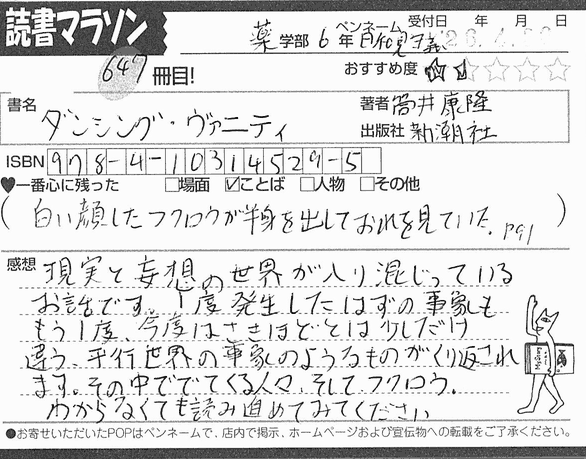 読書マラソン
647 冊目!
薬 学部 6 年 ペンネーム 受付日 年 月 日
おすすめ度 ★★☆☆☆
書名 ダンシング・ヴァニティ
著者 筒井康隆
出版社 新潮社
ISBN 978-4-10314529-5
♥一番心に残った □場面 ☑ことば □人物 □その他
(白い顔したフクロウが半身を出しておれを見ていた。P91)
感想 現実と妄想の世界が入り混じっている
お話です。1度発生したはずの事象も
もう1度、今度はさきほどとは少しだけ
違う、平行世界の事象のようなものがくり返され
ます。その中ででてくる人々、そしてフクロウ。
わからなくても読み進めてみてください
●お寄せいただいたPOPはペンネームで、店内で掲示、ホームページおよび宣伝物への転載をご了承ください。